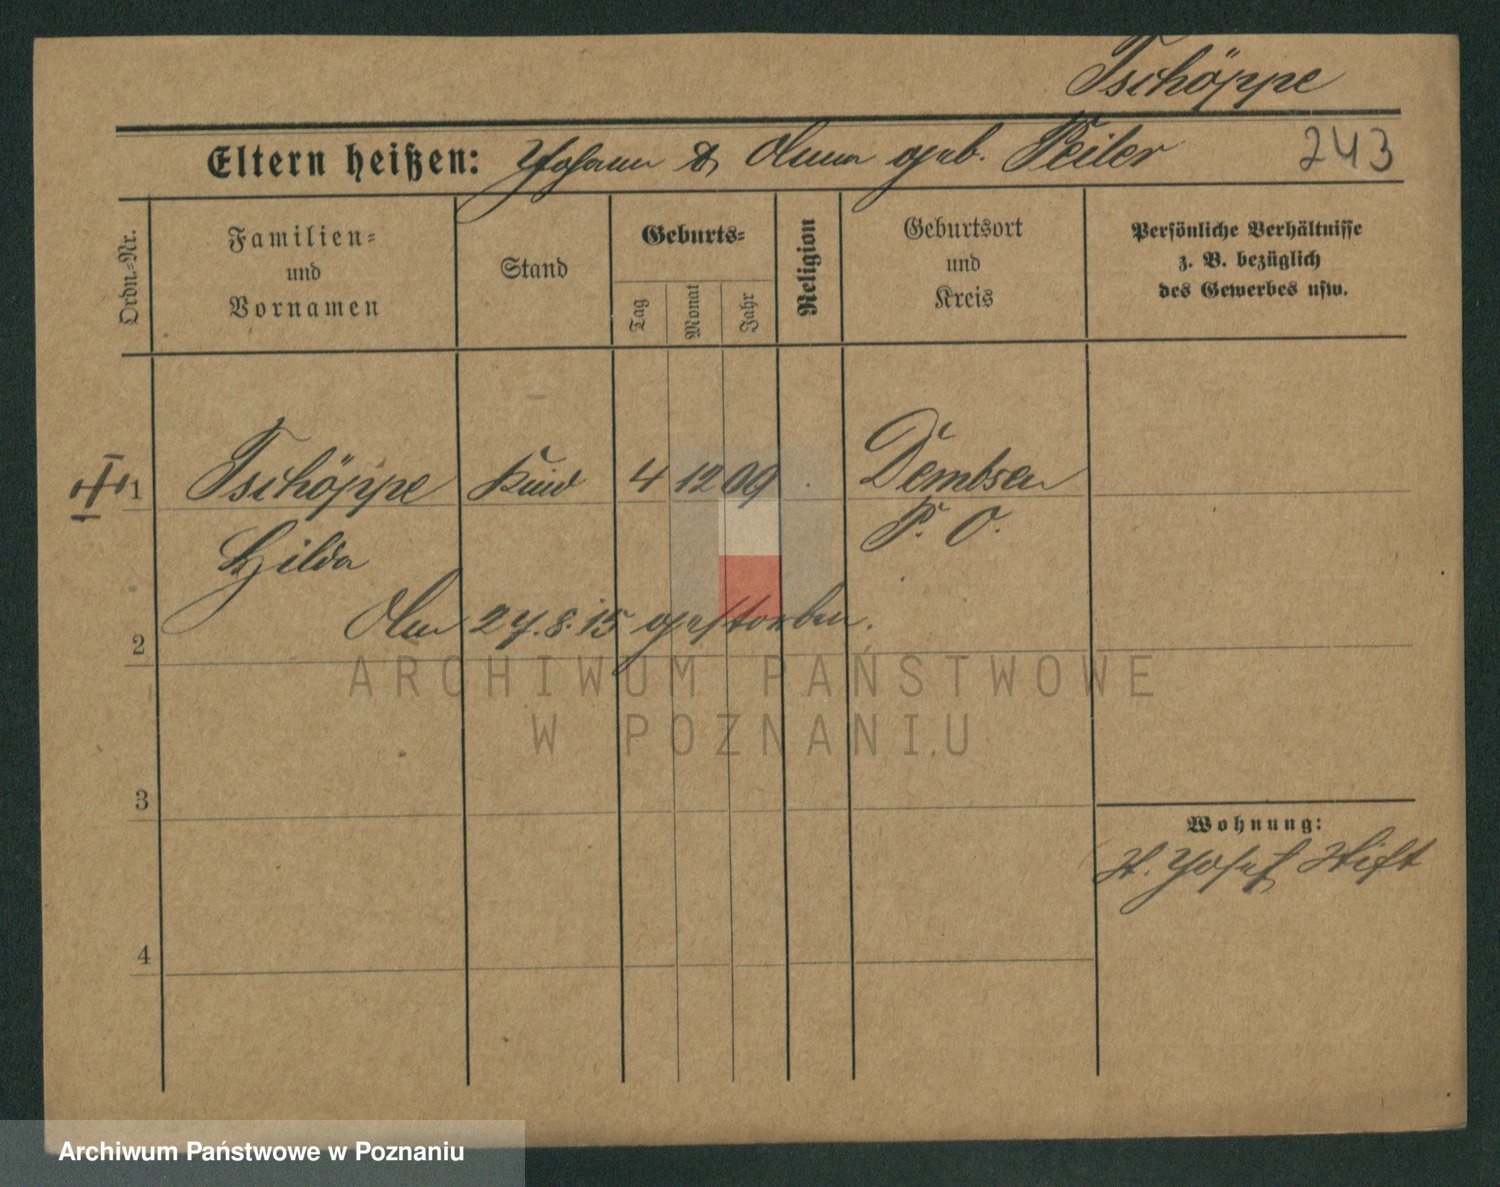 Tschöppe
Eltern heißen: Johann & Anna geb. Peiler 243
Ordn.-Nr.
Familien-
und
Vornamen
Stand
Geburts-
Tag
Monat
Jahr
Religion
Geburtsort
und
Kreis
Persönliche Verhältnisse
z. B. bezüglich
des Gewerbes usw.
1 Tschöppe Kind 4 12 09 Dembsen
Hilda P. O.
Am 27.8.15 gestorben.
2
ARCHIWUM PAŃSTWOWE
W POZNANIU
3
Wohnung:
St. Josef Stift
4
Archiwum Państwowe w Poznaniu